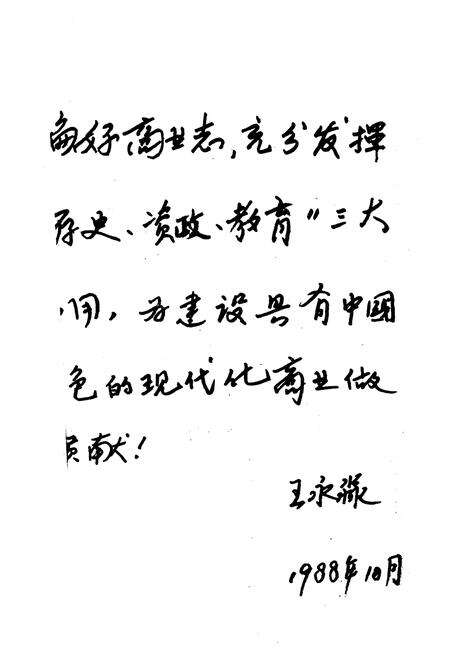 好商业志,充分发揮
存史、资政、教育”三大
用,为建设具有中國
色的现代化商业做
献!
王永淼
1988年10月